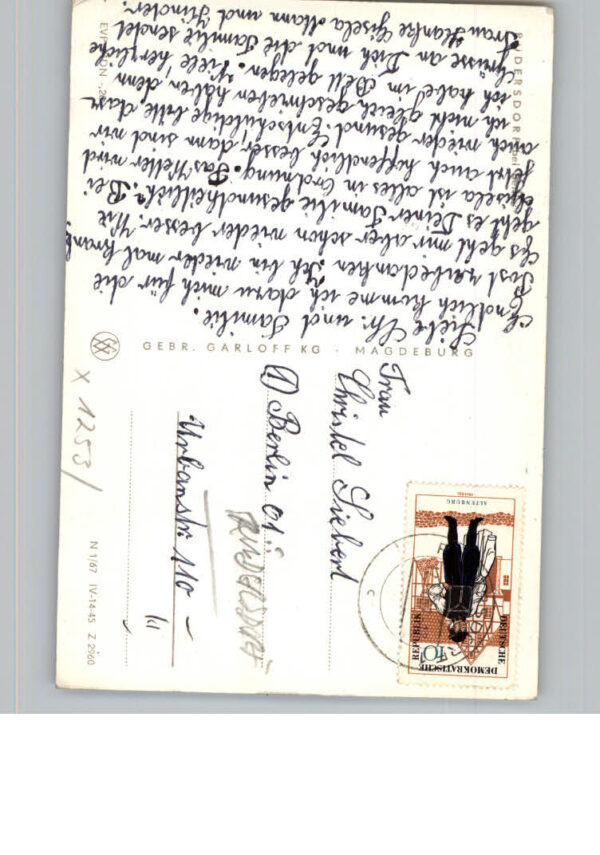 RÜDERSDORF bei
Liebe Chr. und Familie.
Endlich komme ich dazu mich für die
Post zu bedanken. Ich bin wieder mal krank
Es geht mir aber schon wieder besser. Wie
geht es Deiner Familie gesundheitlich? Bei
Gisela ist alles in Ordnung. Das Wetter wird
jetzt auch hoffentlich besser dann sind wir
auch wieder gesund. Entschuldige bitte, dass
ich nicht gleich geschrieben habe, denn
ich habe im Bett gelegen. Viele herzliche
Grüsse an Dich und die Familie sendet
Frau Hanke Gisela Mann und Kinder.
GEBR. GARLOFF KG · MAGDEBURG
Frau
Christel Siebert
(1) Berlin 01
RÜDERSDORF
Urbanstr. 110
X 1253/
N 1/67 IV-14-45 Z 2960
DEUTSCHE
DEMOKRATISCHE
REPUBLIK
10
ALTENBURG